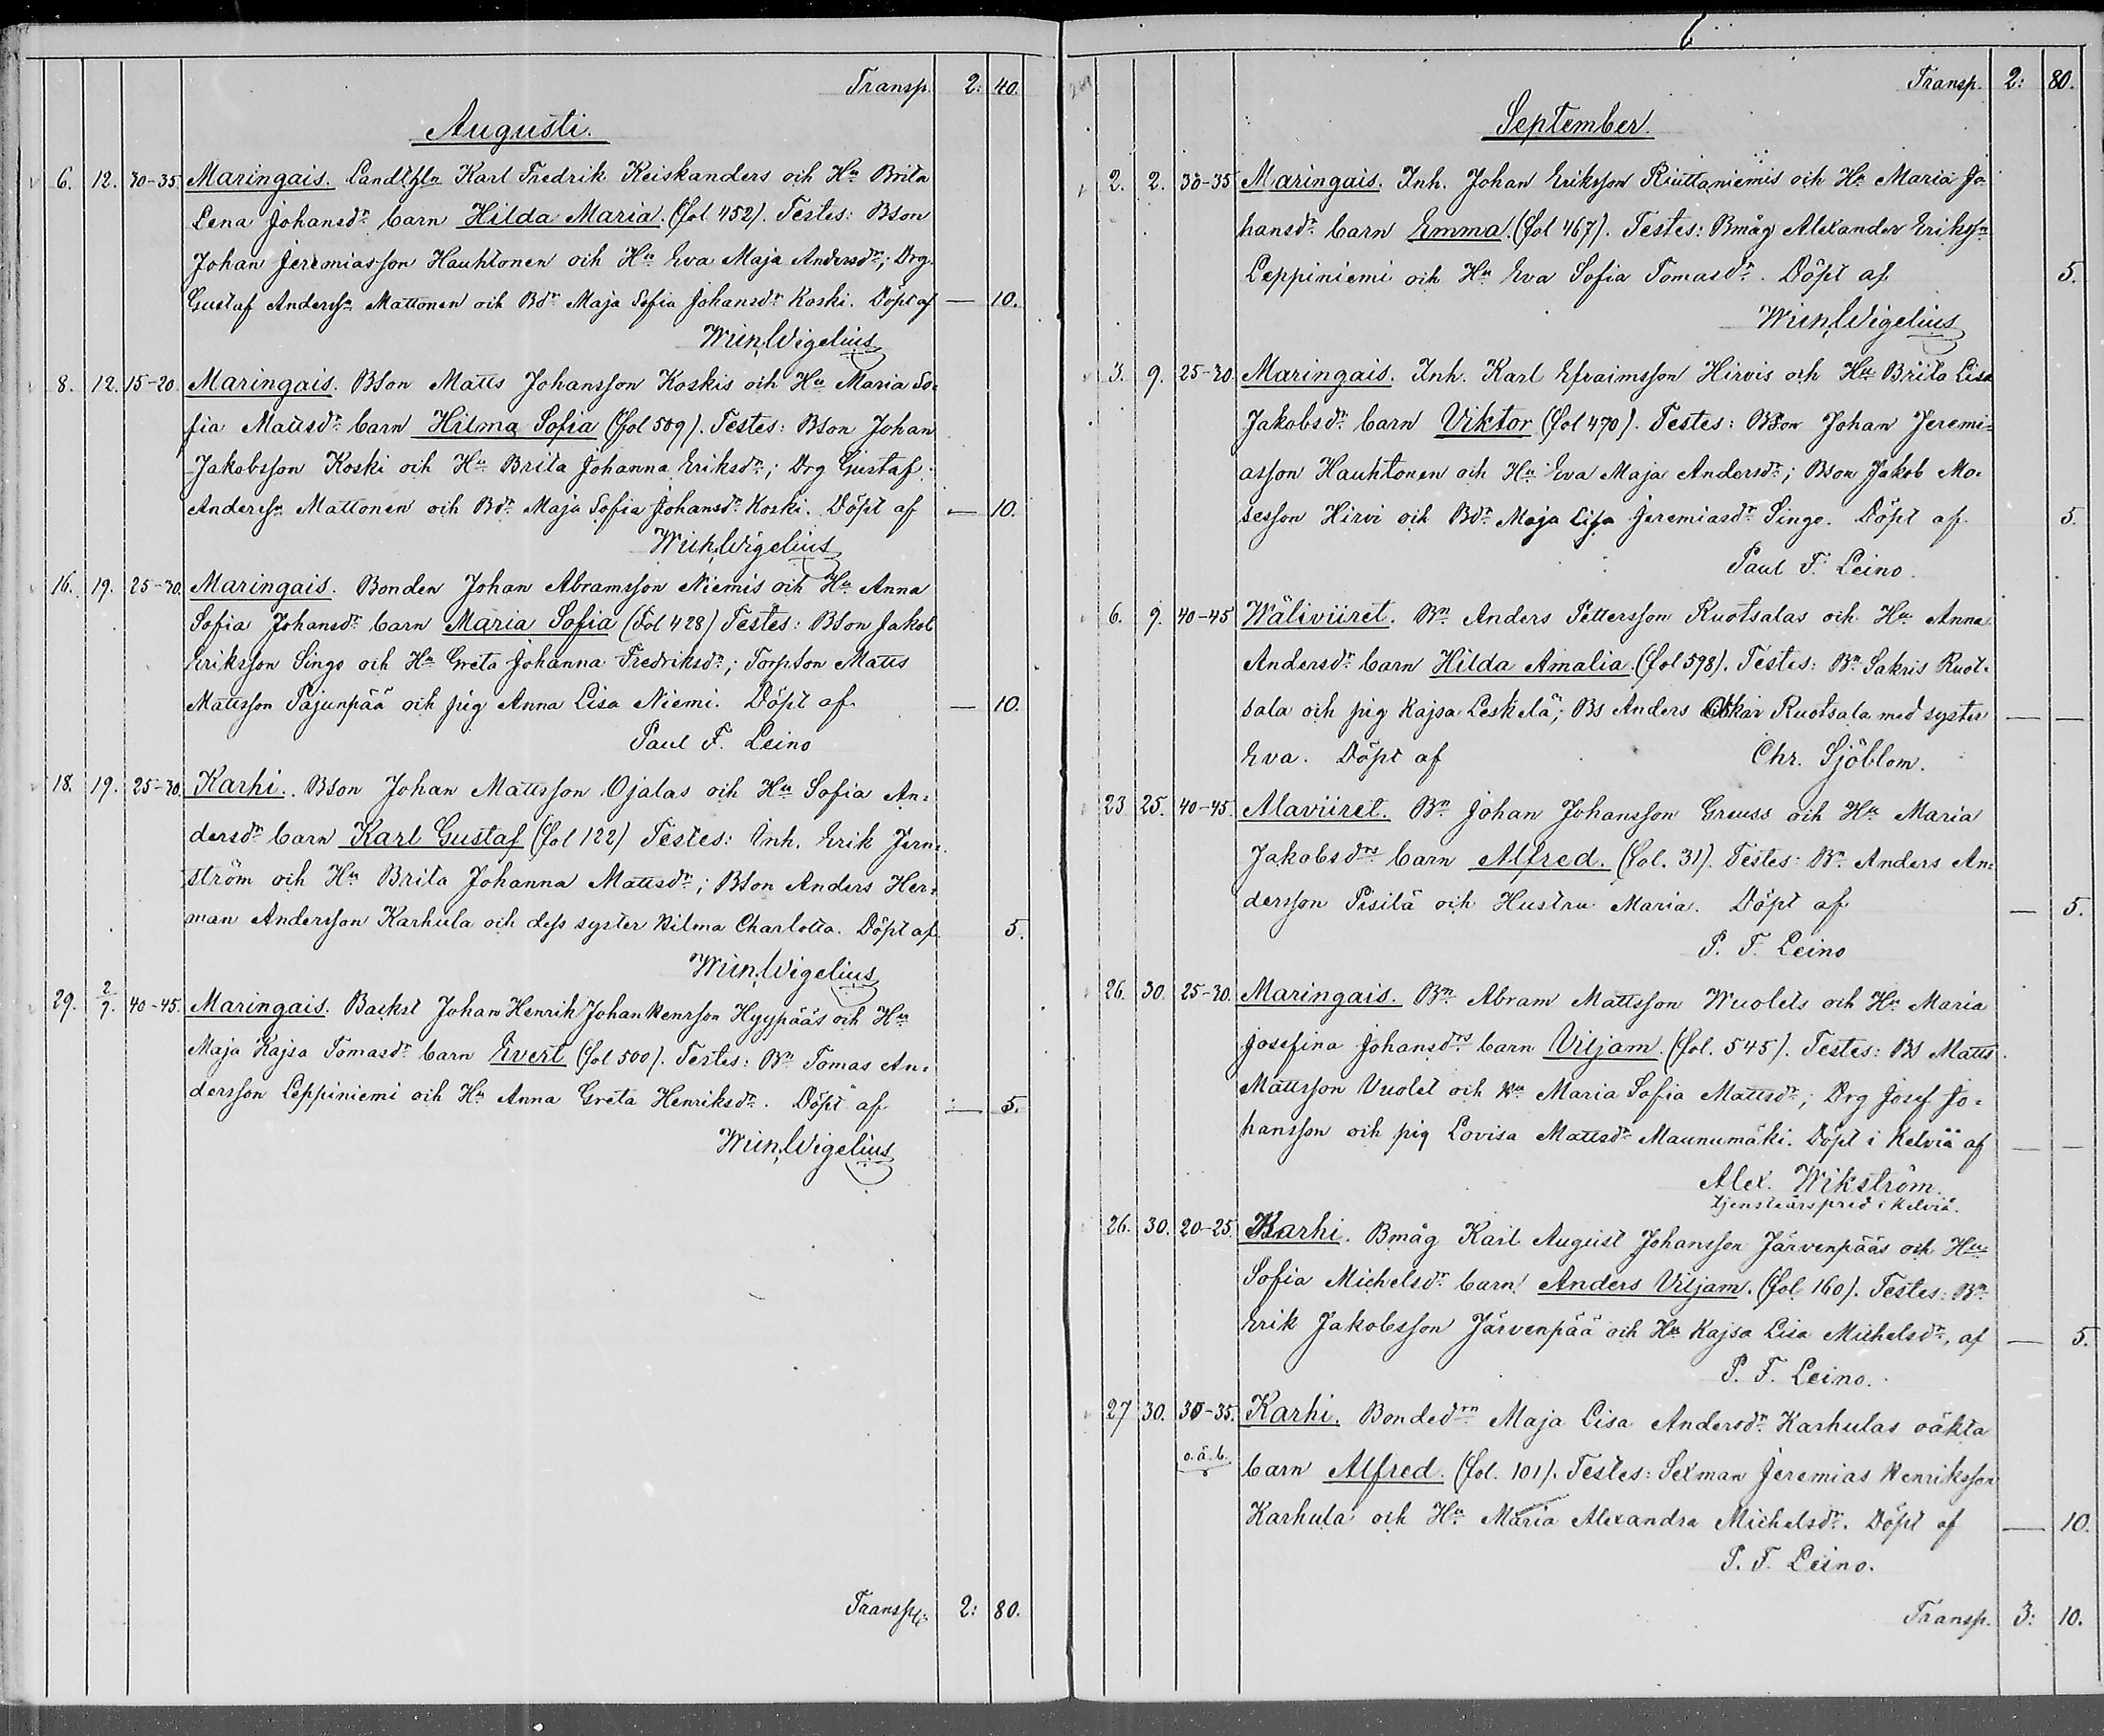 Transp. 2: 40.
Augusti.
6. 12. 30-35. Maringais. Landthln Karl Fredrik Keiskanders och Hu Brita
Lena Johansdr barn Hilda Maria. (fol 452). Testes: Bson
Johan Jeremiasson Hauhtonen och Hu Eva Maja Andersdr; Drg.
Gustaf Anderssn Mattonen och Bdr Maja Sofia Johansdr Koski. Döpt af — 10.
Wigelius
8. 12. 15-20. Maringais. Bson Matts Johansson Koskis och Hu Maria So-
fia Mattsdr barn Hilma Sofia (fol 509). Testes: Bson Johan
Jakobsson Koski och Hu Brita Johanna Eriksdr; Drg Gustaf
Anderssn Mattonen och Bdr Maja Sofia Johansdr Koski. Döpt af — 10.
Wigelius
16. 19. 25-30. Maringais. Bonden Johan Abramsson Niemis och Hu Anna
Sofia Johansdr barn Maria Sofia (Fol 428) Testes: Bson Jakob
Eriksson Singo och Hu Greta Johanna Fredriksdr; Torpson Matts
Mattsson Pajunpää och pig Anna Lisa Niemi. Döpt af — 10.
Paul F. Leino
18. 19. 25-30. Karhi. Bson Johan Mattsson Ojalas och Hu Sofia An-
dersdr barn Karl Gustaf (fol 122) Testes: Inh. Erik Jern-
ström och Hu Brita Johanna Mattsdr; Bson Anders Her-
man Andersson Karhula och dess syster Hilma Charlotta. Döpt af 5.
Wigelius
29. 2/9. 40-45. Maringais. Backst Johan Henrik Johan Henrson Hyypääs och Hu
Maja Kajsa Tomasdr barn Evert (fol 500). Testes: Bn Tomas An-
dersson Leppiniemi och Hu Anna Greta Henriksdr. Döpt af — 5.
Wigelius
Transp. 2: 80.
6
Transp. 2: 80.
September.
2. 2. 30-35 Maringais. Inh. Johan Eriksson Riuttaniemis och Hu Maria Jo-
hansdr barn Emma. (fol 467). Testes: Bmåg Alexander Erikssn
Leppiniemi och Hu Eva Sofia Tomasdr. Döpt af 5.
Wigelius
3. 9. 25-30. Maringais. Inh. Karl Efraimsson Hirvis och Hu Brita Lisa
Jakobsdr barn Viktor (fol 470). Testes: Bson Johan Jeremi-
asson Hauhtonen och Hu Eva Maja Andersdr; Bson Jakob Mo-
sesson Hirvi och Bdr Maja Lisa Jeremiasdr Singo. Döpt af 5.
Paul F. Leino.
6. 9. 40-45 Wäliviiret. Bn Anders Pettersson Ruotsalas och Hu Anna
Andersdr barn Hilda Amalia. (fol 598). Testes: Bn Sakris Ruot-
sala och pig Kajsa Leskelä; Bs Anders Oskar Ruotsala med syster — —
Eva. Döpt af Chr. Sjöblom.
23 25. 40-45. Alaviiret. Bn Johan Johansson Greuss och Hu Maria
Jakobsdrs barn Alfred. (fol. 31). Testes: Bn Anders An-
dersson Pisilä och Hustru Maria. Döpt af — 5.
P. F. Leino
26. 30. 25-30. Maringais. Bn Abram Mattsson Wuolets och Hu Maria
Josefina Johansdrs barn Viljam. (fol. 545). Testes: Bs Matts
Mattsson Vuolet och Hu Maria Sofia Mattsdr; Drg Josef Jo-
hansson och pig Lovisa Mattsdr Maunumäki. Döpt i Kelviä af — —
Alex. Wikström.
tjensteårspred i Kelviä.
26. 30. 20-25. Karhi. Bmåg Karl August Johansson Järvenpääs och Hu
Sofia Michelsdr barn Anders Viljam. (fol 160). Testes: Bn
Erik Jakobsson Järvenpää och Hu Kajsa Lisa Michelsdr, af — 5.
P. F. Leino.
27 30. 30-35. Karhi. Bondedrn Maja Lisa Andersdr Karhulas oäkta
o.ä.b. barn Alfred. (fol. 101). Testes: Sexman Jeremias Henriksson
Karhula och Hu Maria Alexandra Michelsdr. Döpt af — 10.
P. F. Leino.
Transp. 3: 10.